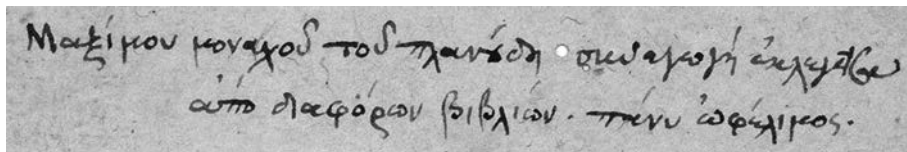 Μαξίμου μοναχοῦ τοῦ πλανούδη συναγωγὴ ἐκλεγεῖσα
ἀπὸ διαφόρων βιβλίων. πάνυ ὠφέλιμος.